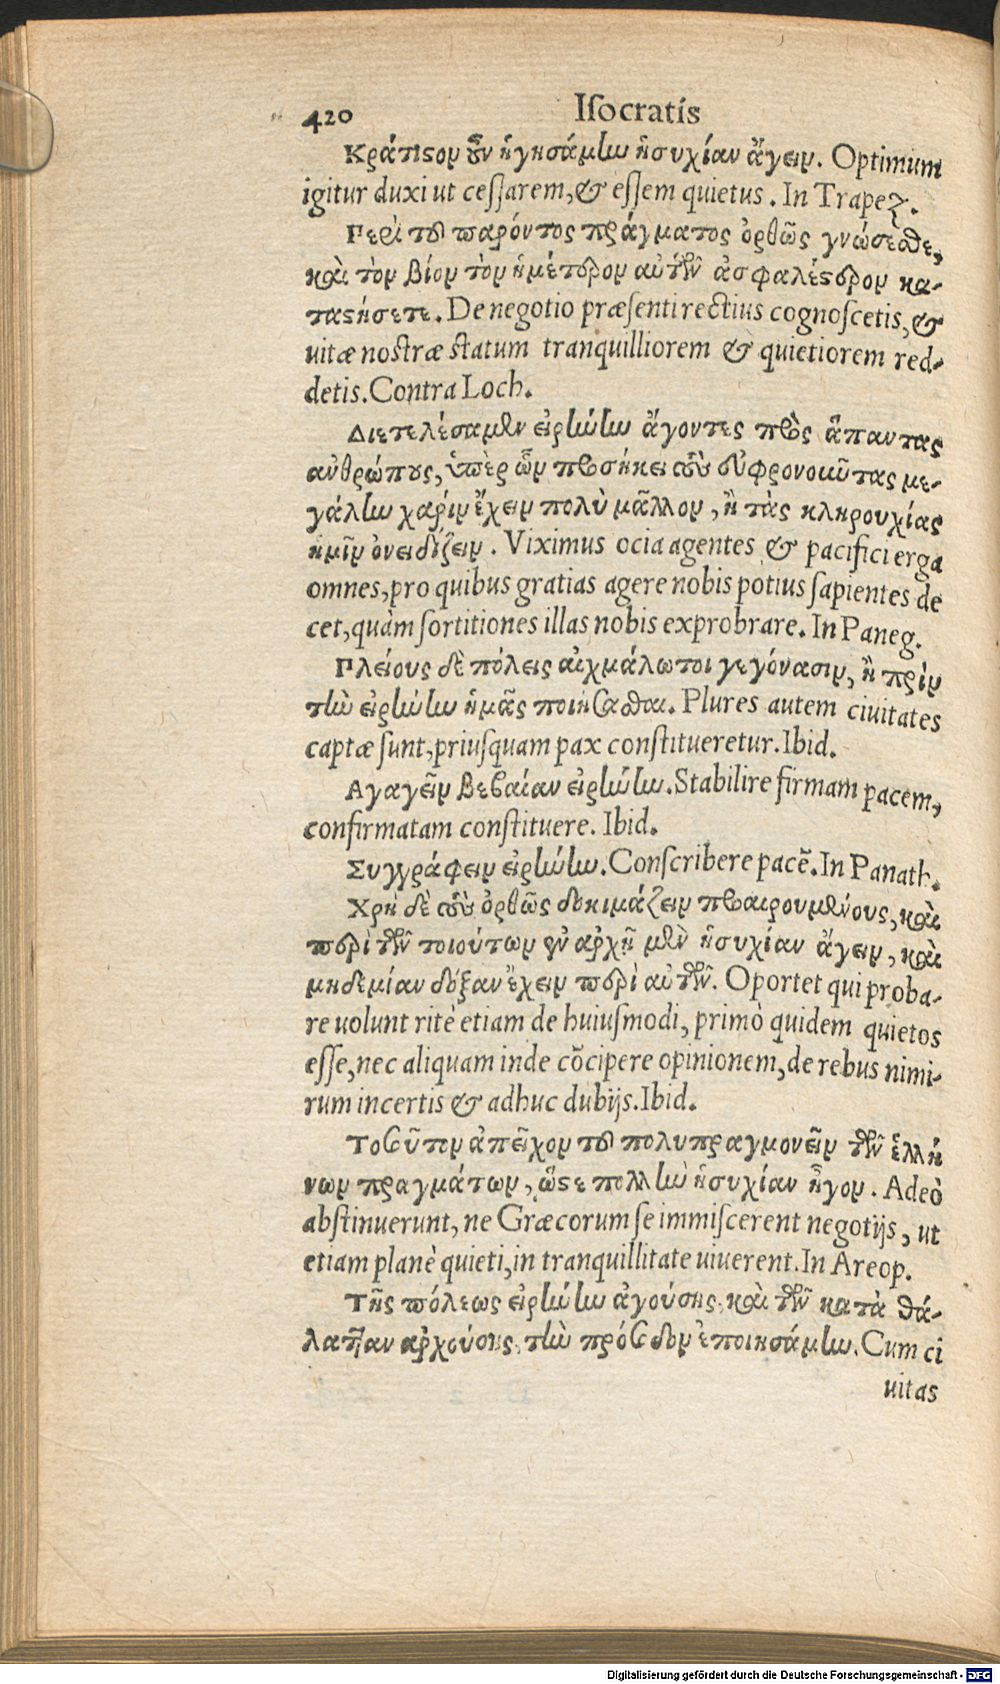 420 Iſocratis
Κράτιςον οὖν ἡγησάμην ἡσυχίαν ἄγειν. Optimum
igitur duxi ut ceſſarem, & eſſem quietus. In Trapez.
Περὶ τοῦ παρόντος πράγματος ὀρθῶς γνώσεσθε,
καὶ τὸν βίον τὸν ἡμέτερον αὐτῶν ἀσφαλέςερον κα-
ταςήσετε. De negotio præſenti rectius cognoſcetis, &
uitæ noſtræ ſtatum tranquilliorem & quietiorem red-
detis. Contra Loch.
Διετελέσαμεν εἰρήνην ἄγοντες πρὸς ἅπαντας
ἀνθρώπους, ὑπὲρ ὧν προσήκει τοὺς εὖ φρονοῦντας με-
γάλην χάριν ἔχειν πολὺ μᾶλλον, ἢ τὰς κληρουχίας
ἡμῖν ὀνειδίζειν. Viximus ocia agentes & pacifici erga
omnes, pro quibus gratias agere nobis potius ſapientes de
cet, quàm ſortitiones illas nobis exprobrare. In Paneg.
Πλείους δὲ πόλεις αἰχμάλωτοι γεγόνασιν, ἢ πρὶν
τὴν εἰρήνην ἡμᾶς ποιήσασθαι. Plures autem ciuitates
captæ ſunt, priuſquam pax conſtitueretur. Ibid.
Αγαγεῖν βεβαίαν εἰρήνην. Stabilire firmam pacem,
confirmatam conſtituere. Ibid.
Συγγράφειν εἰρήνην. Conſcribere pacẽ. In Panath.
Χρὴ δὲ τοὺς ὀρθῶς δοκιμάζειν προαιρουμένους, καὶ
περὶ τῶν τοιούτων ἐν ἀρχῇ μὲν ἡσυχίαν ἄγειν, καὶ
μηδεμίαν δόξαν ἔχειν περὶ αὐτῶν. Oportet qui proba-
re uolunt ritè etiam de huiuſmodi, primò quidem quietos
eſſe, nec aliquam inde cõcipere opinionem, de rebus nimi-
rum incertis & adhuc dubijs. Ibid.
Τοσοῦτον ἀπεῖχον τοῦ πολυπραγμονεῖν τῶν ἑλλή
νων πραγμάτων, ὥςε πολλὴν ἡσυχίαν ἦγον. Adeò
abſtinuerunt, ne Græcorum ſe immiſcerent negotijs, ut
etiam planè quieti, in tranquillitate uiuerent. In Areop.
Τῆς πόλεως εἰρήνην ἀγούσης, καὶ τῶν κατὰ θά-
λατταν ἀρχούσης, τὴν πρόσοδον ἐποιησάμην. Cum ci
uitas
Digitalisierung gefördert durch die Deutsche Forschungsgemeinschaft - DFG